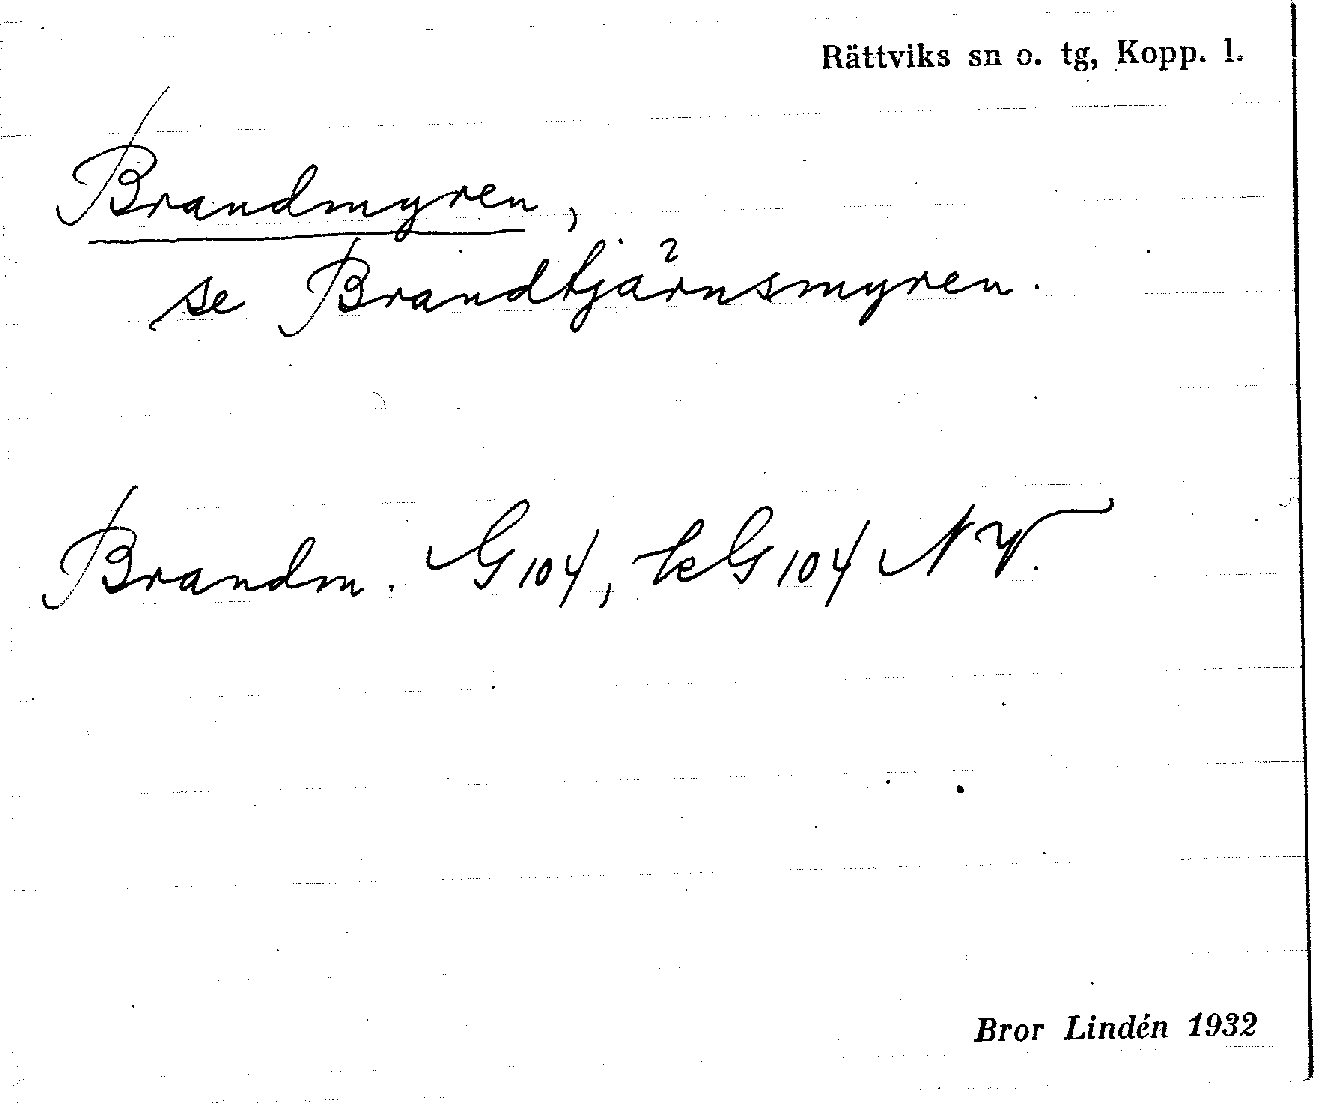 Rättviks sn o. tg, Kopp. l.
Brandmyren,
se Brandtjärnsmyren.
Brandm. G 104, kG 104 NV.
Bror Lindén 1932